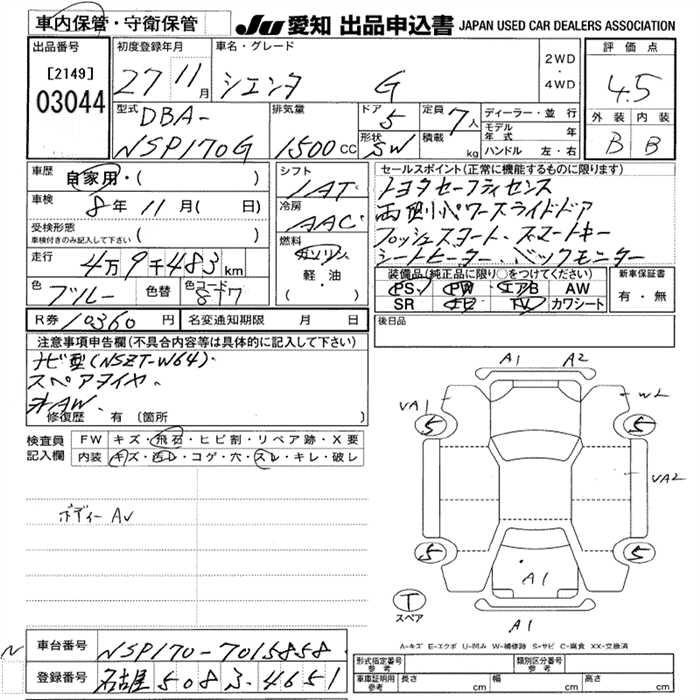 車内保管・守衛保管
JU 愛知 出品申込書 JAPAN USED CAR DEALERS ASSOCIATION
出品番号
[2149]
03044
初度登録年月
27 11月
車名・グレード
シエンタ G
2WD
・
4WD
評価点
4.5
外装 内装
B B
型式
DBA-
NSP170G
排気量
1500 CC
ドア 5
形状 SW
定員 7人
積載 kg
ディーラー・並行
モデル年式 年
ハンドル 左・右
車歴 自家用・( )
車検 8年 11月( 日)
受検形態
車検付きのみ記入して下さい ( )
走行 4万9千483km
色 ブルー 色替 色コード 8W7
シフト
IAT
冷房
AAC
燃料
ガソリン
軽・油
( )
セールスポイント(正常に機能するものに限ります)
トヨタセーフティセンス
両側パワースライドドア
プッシュスタート、スマートキー
シートヒーター、バックモニター
装備品(純正品に限り○をつけてください)
PS PW エアB AW
SR ナビ TV カワシート
新車保証書
有・無
R券 10360円 名変通知期限 月 日
後日品
注意事項申告欄(不具合内容等は具体的に記入して下さい)
ナビ型(NSZT-W64).
スペアタイヤ.
AW.
修復歴 有 〔箇所 〕
検査員
記入欄
FW キズ・飛石・ヒビ割・リペア跡・X要
内装 キズ・汚レ・コゲ・穴・スレ・キレ・破レ
ボディー AV
A1 A2
VA1 WL
5 5
VA2
5 5
A1
T
スペア
A1
A-キズ E-エクボ U-凹み W-補修跡 S-サビ C-腐食 XX-交換済
N 車台番号 NSP170-7015858
登録番号 名古屋 508 ろ 4651
形式指定番号
参考
類別区分番号
参考
車庫証明用
参考
長さ cm 幅 cm 高さ cm